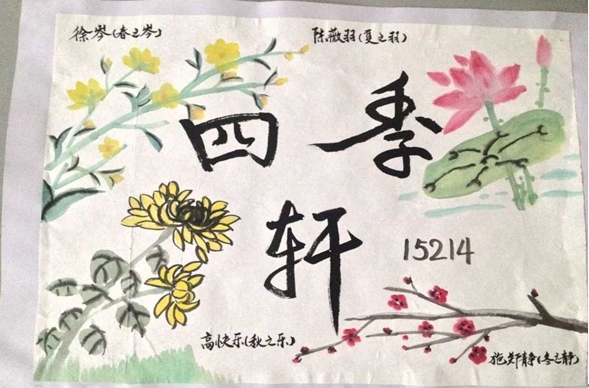 徐岑(春之岑)
陈薇羽(夏之羽)
四季
轩
15214
高快乐(秋之乐)
施郑静(冬之静)